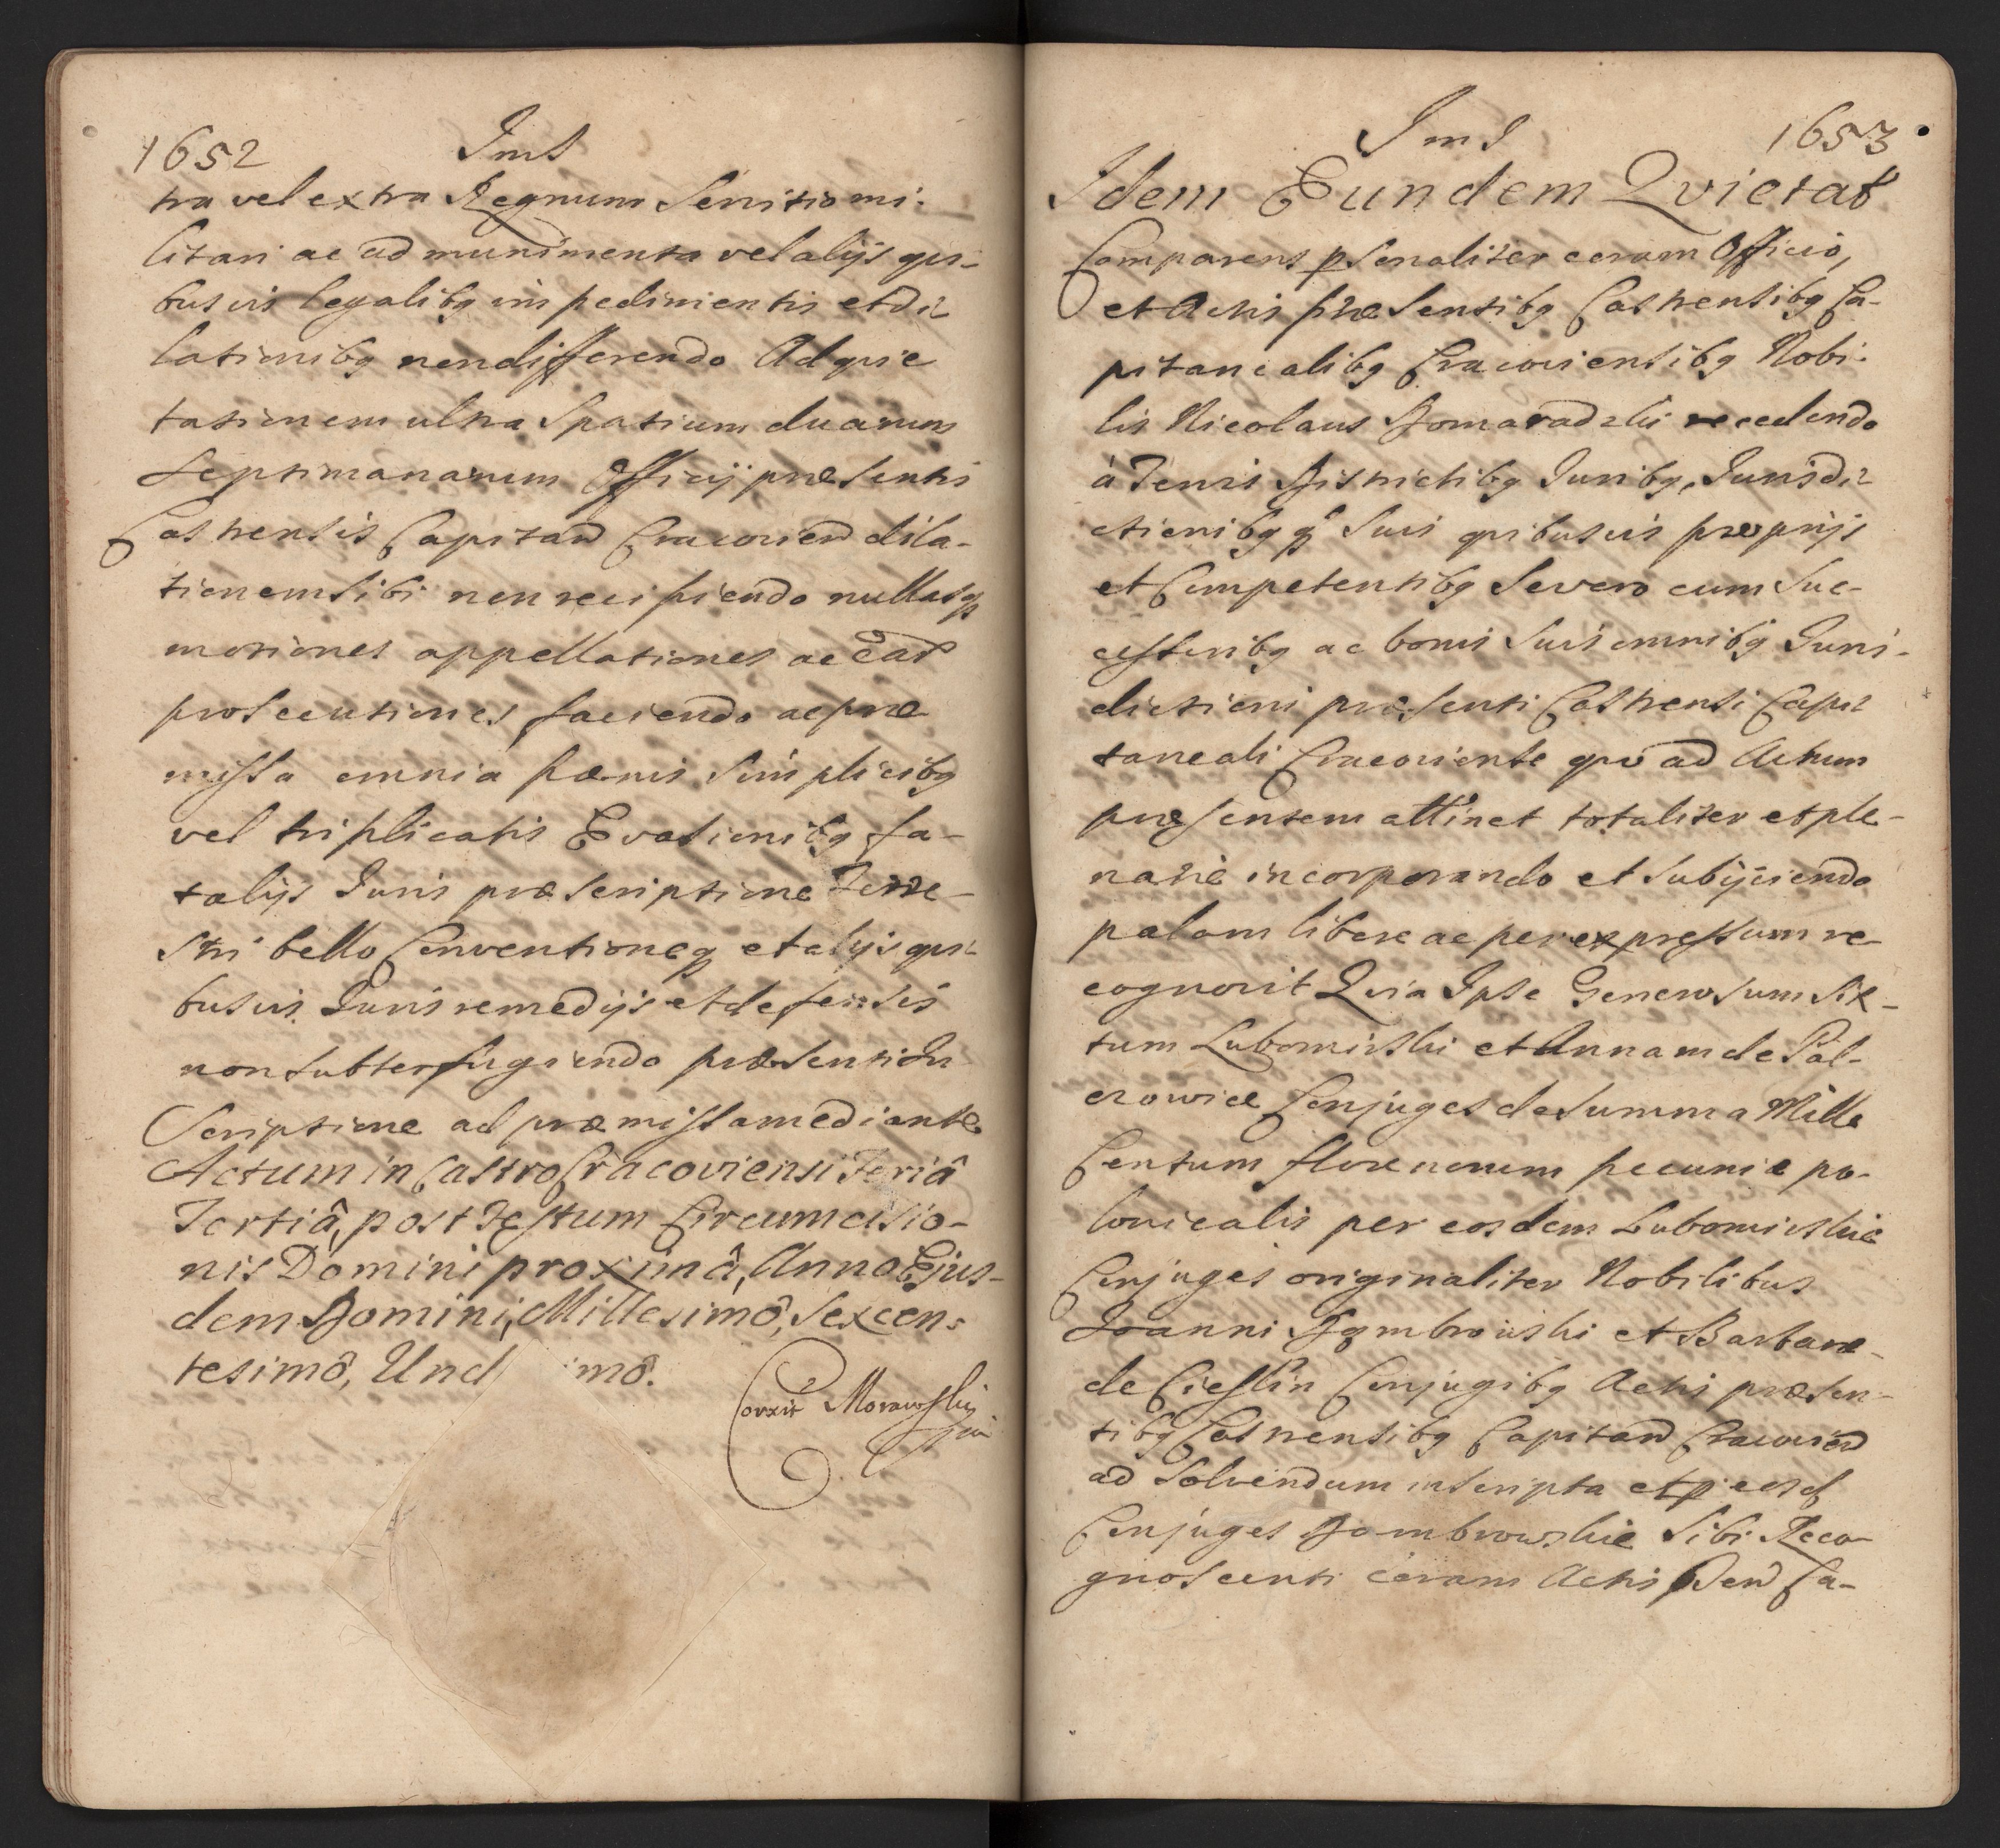 1652
Ims
tra vel extra Regnum Servitio mi-
litari ac ad munimenta vel alijs qui-
busvis legalibq impedimentis et di-
lationibq non differendo Ad quie
tationem ultra Spatium duarum
Septimanarum Officij præsentis
Castrensis Capitan Cracovien dila-
tionem sibi non recipiendo nullasq
motiones appellationes ac ear
prosecutiones faciendo ac præ
missa omnia pænis simplicibq
vel triplicatis Evasionibq fa-
talijs Juris præscriptione Terre-
stri bello Conventioneq et alijs qui-
busvis Juris remedijs et defensis
non subterfugiendo præsenti In
Scriptione ad præmissa mediante
Actum in Castro Cracoviensi Feriâ
Tertiâ, post Festum Circumcisio-
nis Domini proximâ, Anno Ejus-
dem Domini, Millesimô, Sexcen-
tesimô, Und mô.
Corxit Morawskij
Ims
1653
Idem Eundem Qvietat
Comparens psonaliter coram Officio,
et Actis præsentibq Castrensibq Ca-
pitanealibq Cracoviensibq Nobi-
lis Nicolaus Domaradzki recedendo
à Terris Districtibq Juribq, Jurisdi-
ctionibq q suis quibusvis proprijs
et Competentibq Severo cum Suc-
cessoribq ac bonis Suis omnibq Juris-
dictioni præsenti Castrensi Capi-
taneali Cracoviensi quo ad Actum
præsentem attinet totaliter et ple-
narie incorporando et subijciendo
palam libere ac per expressum re-
cognovit Qvia Ipse Generosum Six-
tum Lubomirski et Annam de Pal-
czowice Conjuges de Summa Mille
Centum florenorum pecuniæ po-
lonicalis per eosdem Lubomirskie
Conjuges originaliter Nobilibus
Joanni Dombrowski et Barbaræ
de Cieslin Conjugibq Actis præsen-
tibq Castrensibq Capitan Cracovien
ad Solvendum inscripta et p eosd
Conjuges Dombrowskie Sibi Reco-
gnoscenti coram Actis Pen Ca-